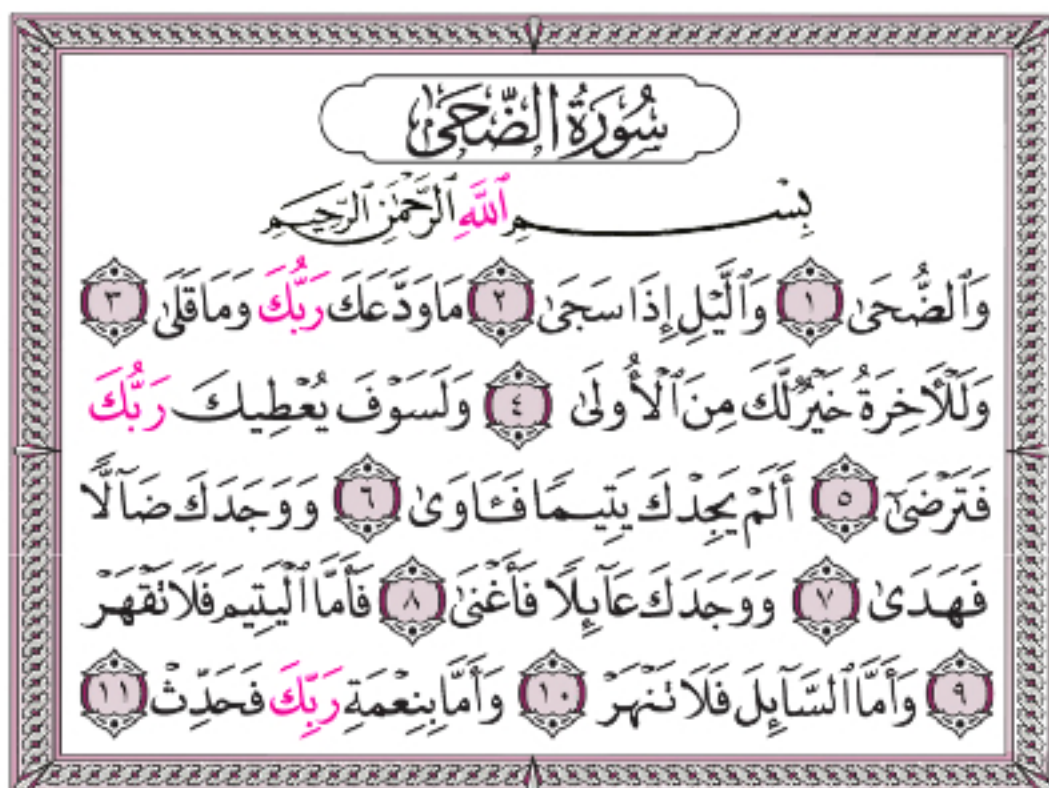 سُورَةُ الضُّحَىٰ
بِسْمِ ٱللَّهِ ٱلرَّحْمَٰنِ ٱلرَّحِيمِ
وَٱلضُّحَىٰ ١ وَٱلَّيْلِ إِذَا سَجَىٰ ٢ مَا وَدَّعَكَ رَبُّكَ وَمَا قَلَىٰ ٣
وَلَلْءَاخِرَةُ خَيْرٌ لَّكَ مِنَ ٱلْأُولَىٰ ٤ وَلَسَوْفَ يُعْطِيكَ رَبُّكَ
فَتَرْضَىٰٓ ٥ أَلَمْ يَجِدْكَ يَتِيمًا فَـَٔاوَىٰ ٦ وَوَجَدَكَ ضَآلًّا
فَهَدَىٰ ٧ وَوَجَدَكَ عَآئِلًا فَأَغْنَىٰ ٨ فَأَمَّا ٱلْيَتِيمَ فَلَا تَقْهَرْ
٩ وَأَمَّا ٱلسَّآئِلَ فَلَا تَنْهَرْ ١٠ وَأَمَّا بِنِعْمَةِ رَبِّكَ فَحَدِّثْ ١١